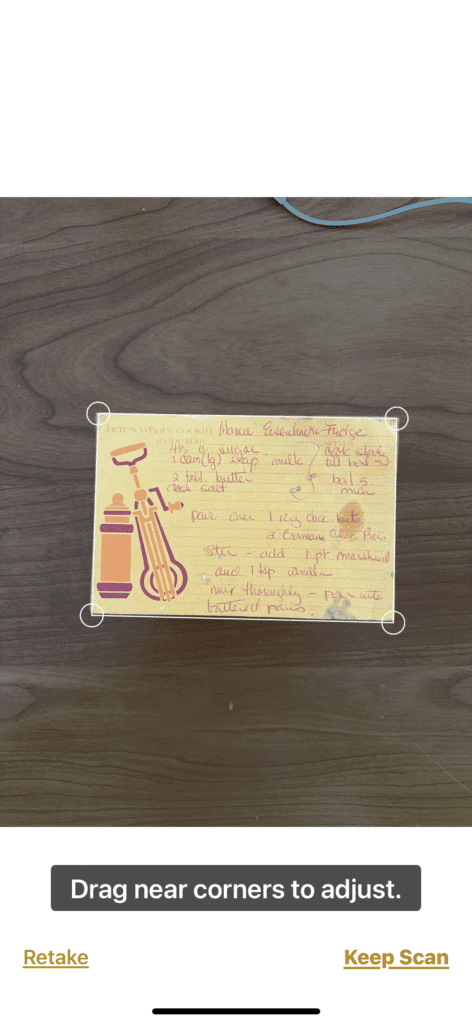 Here's what's cookin' Mamie Eisenhower Fudge
recipe from
4½ c sugar
1 can (lg) evap milk
2 tbld. butter
dash salt
cook slow
till boils
boil 5
min
pour over 1 12oz choc bits
3 German Choc Bars
stir - add 1 pt marshmal
and 1 tsp vanilla
mix thoroughly - pour into
buttered pans.
Drag near corners to adjust.
Retake
Keep Scan